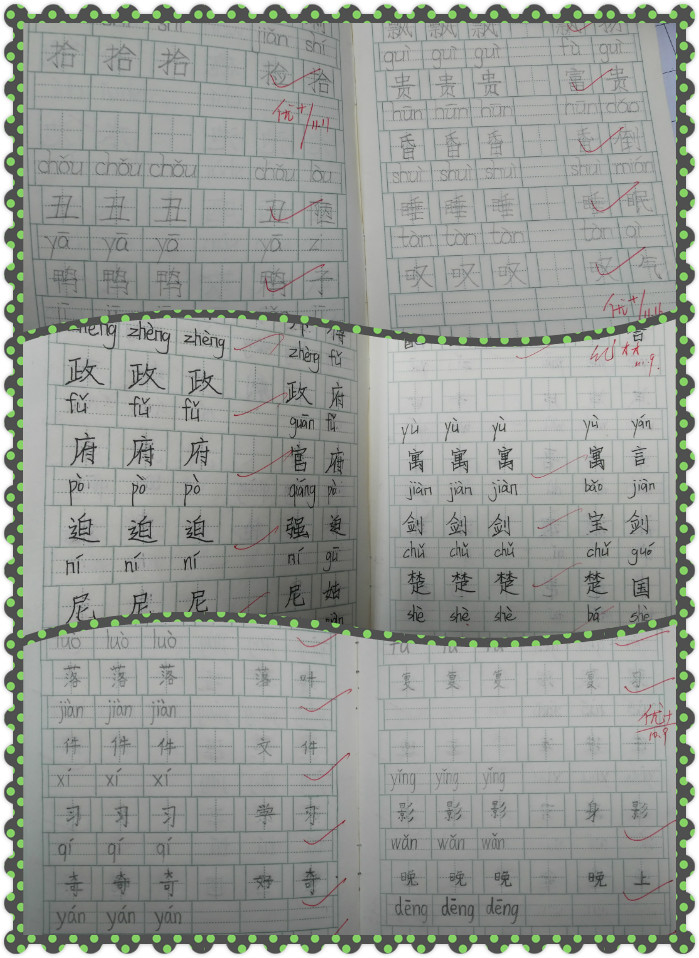 jiǎn shí
拾 拾 拾 捡 拾
优+
11.11
chǒu chǒu chǒu chǒu
丑 丑 丑 丑
yā yā yā yā zi
鸭 鸭 鸭 鸭 子
guì guì guì fù guì
贵 贵 贵 富 贵
hūn hūn hūn hūn dǎo
昏 昏 昏 昏 倒
shuì shuì shuì shuì mián
睡 睡 睡 睡 眠
tàn tàn tàn tàn qì
叹 叹 叹 叹 气
优+
zhèng zhèng zhèng zhèng fǔ
政 政 政 政 府
fǔ fǔ fǔ guān fǔ
府 府 府 官 府
pò pò pò qiǎng pò
迫 迫 迫 强 迫
ní ní ní ní gū
尼 尼 尼 尼 姑
11.9.
yù yù yù yù yán
寓 寓 寓 寓 言
jiàn jiàn jiàn bǎo jiàn
剑 剑 剑 宝 剑
chǔ chǔ chǔ chǔ guó
楚 楚 楚 楚 国
shè shè shè bá shè
luò luò luò
落 落 落 落 叶
jiàn jiàn jiàn
件 件 件 文 件
xí xí xí
习 习 习 学 习
qí qí qí
奇 奇 奇 好 奇
yán yán yán
复 复 复 复 习
优+
10.9
yǐng yǐng yǐng
影 影 影 身 影
wǎn wǎn wǎn
晚 晚 晚 晚 上
dēng dēng dēng